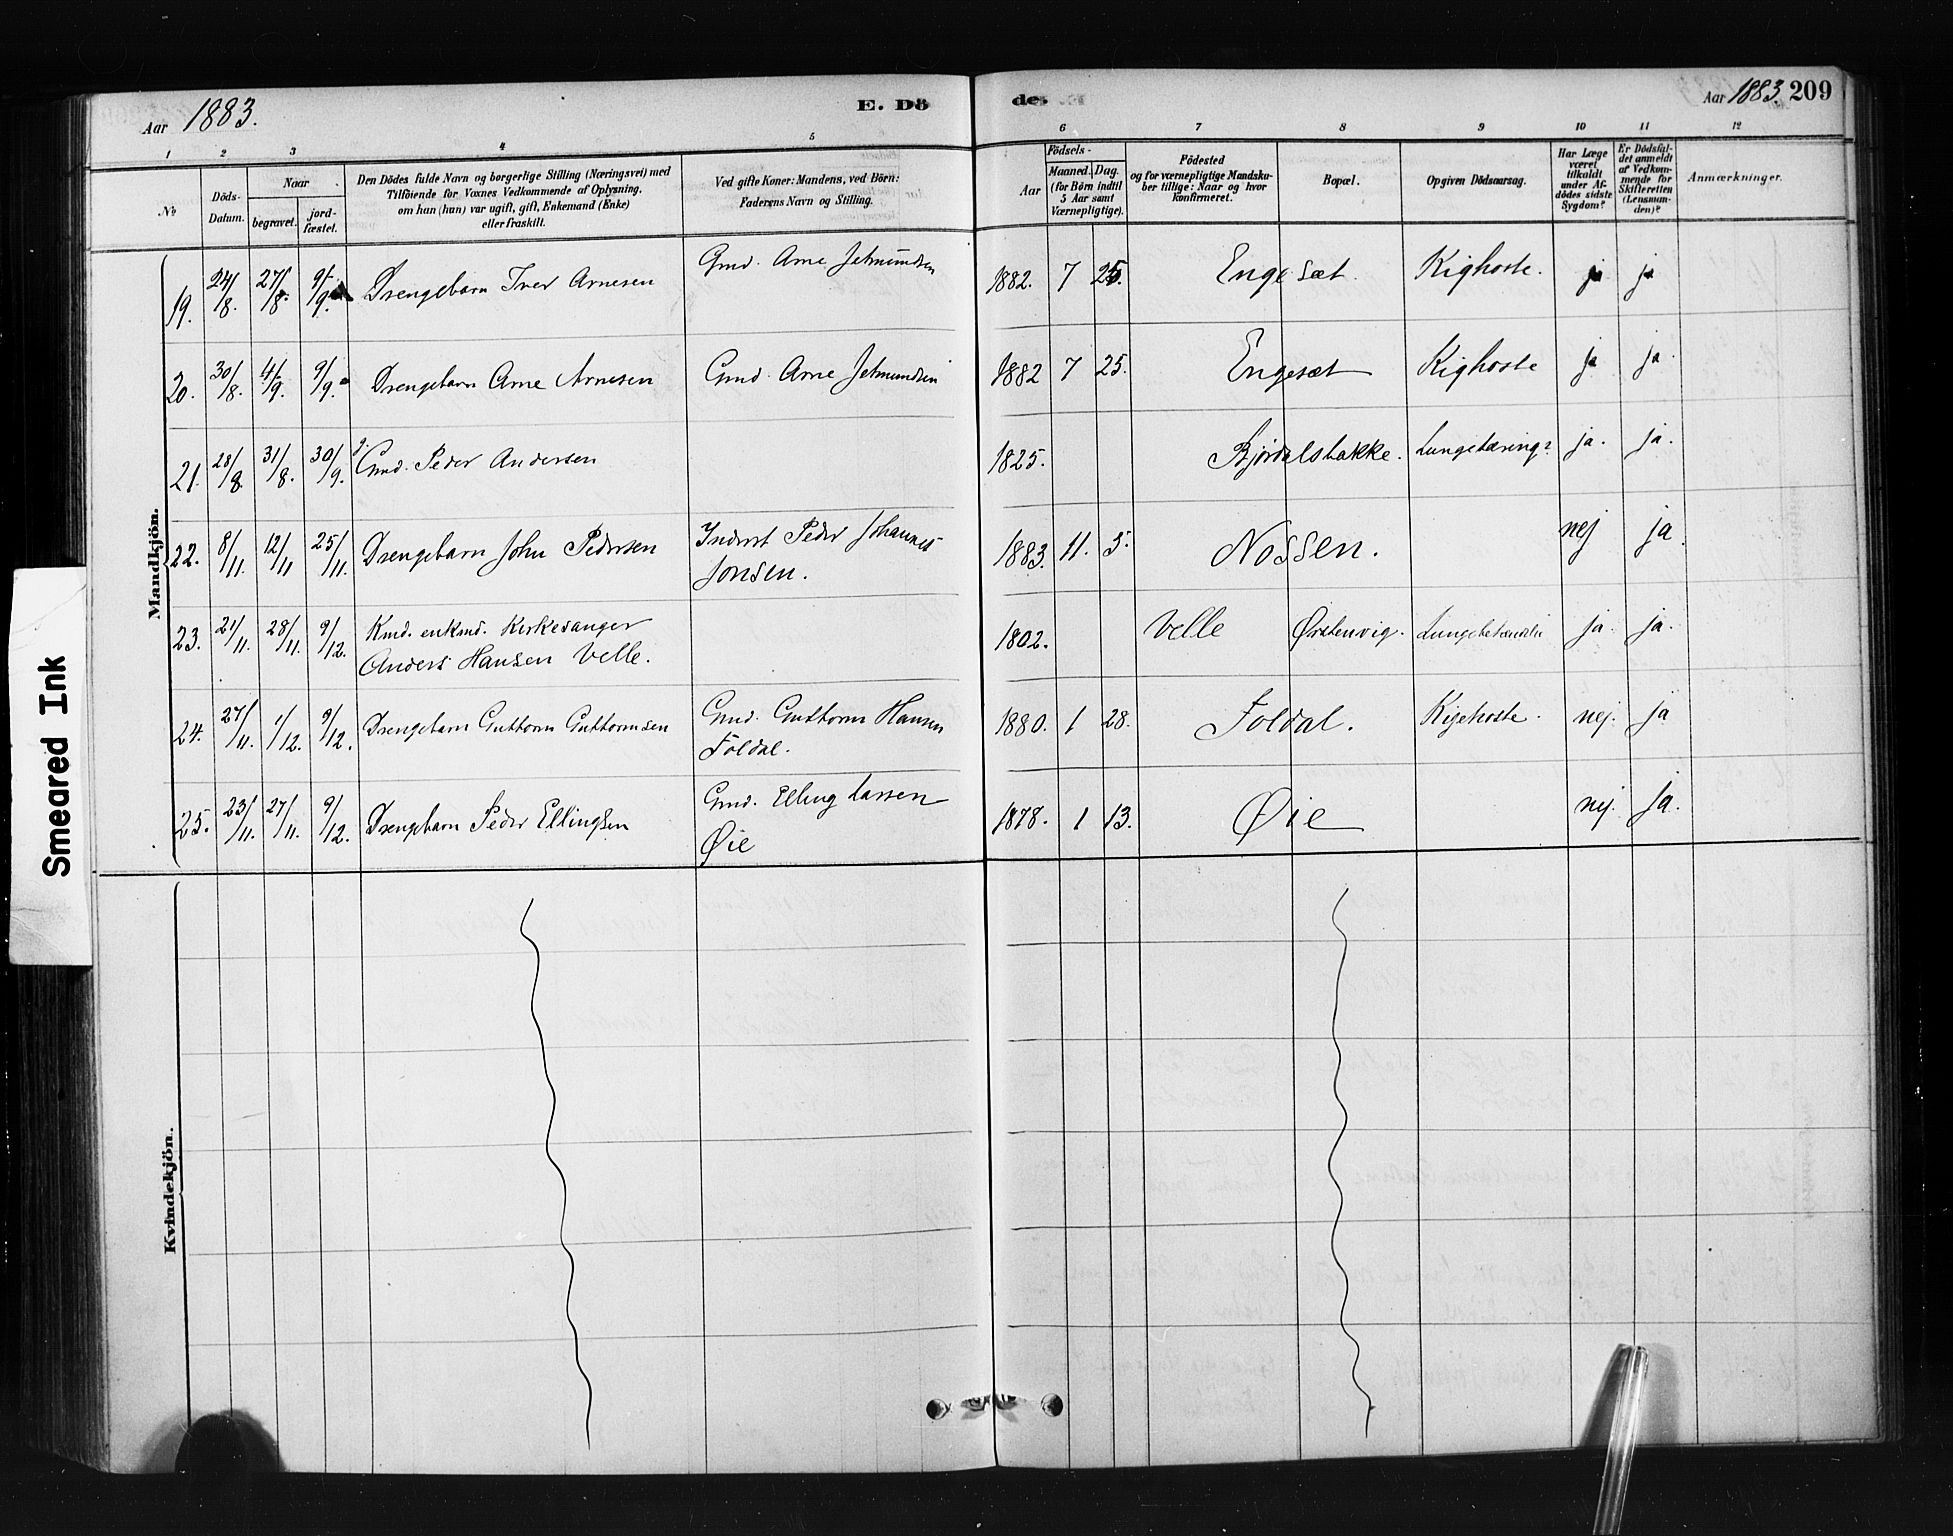 Aar 1883. E. Dö
de. Aar 1883. 209
1 2 3 4 5 6 7 8 9 10 11 12
№
Döds-
Datum.
Naar
begravet.
jord-
fæstet.
Den Dödes fulde Navn og borgerlige Stilling (Næringsvei) med
Tilföiende for Voxnes Vedkommende af Oplysning,
om han (hun) var ugift, gift, Enkemand (Enke)
eller fraskilt.
Ved gifte Koner: Mandens, ved Börn:
Faderens Navn og Stilling.
Födsels-
Aar
Maaned. Dag.
(for Börn indtil
5 Aar samt
Værnepligtige).
Födested
og for værnepligtige Mandska-
ber tillige: Naar og hvor
konfirmeret.
Bopæl.
Opgiven Dödsaarsag.
Har Læge
været
tilkaldt
under Af-
dödes sidste
Sygdom?
Er Dödsfal-
det anmeldt
af Vedkom-
mende for
Skifteretten
(Lensman-
den)?
Anmærkninger.
Mandkjön.
19. 24/8. 27/8. 9/9. Drengebarn Iver Arnesen Gmd. Arne Jetmundsen 1882. 7 25. Engesæt. Kighoste. ja ja
20. 30/8. 4/9. 9/9. Drengebarn Arne Arnesen Gmd. Arne Jetmundsen 1882 7 25. Engesæt Kighoste ja ja.
21. 28/8. 31/8. 30/9. g. Gmd. Peder Andersen 1825. Bjørdalsbakke. Lungetæring? ja. ja.
22. 8/11. 12/11 25/11. Drengebarn John Pedersen Inderst Peder Johannes
Jonsen. 1883. 11. 5. Nossen. nej ja.
23. 21/11. 28/11. 9/12. Kmd. enkmd. Kirkesanger
Anders Hansen Velle. 1802. Velle Ørstenvig. ja. ja.
24. 27/11. 1/12. 9/12. Drengebarn Guttorm Guttormsen Gmd. Guttorm Hansen
Foldal. 1880. 1 28. Foldal. Kigehoste. nej. ja
25. 23/11. 27/11. 9/12. Drengebarn Peder Ellingsen Gmd. Elling Larsen
Øie 1878. 1 13. Øie nej. ja.
Kvindekjön.
Smeared Ink